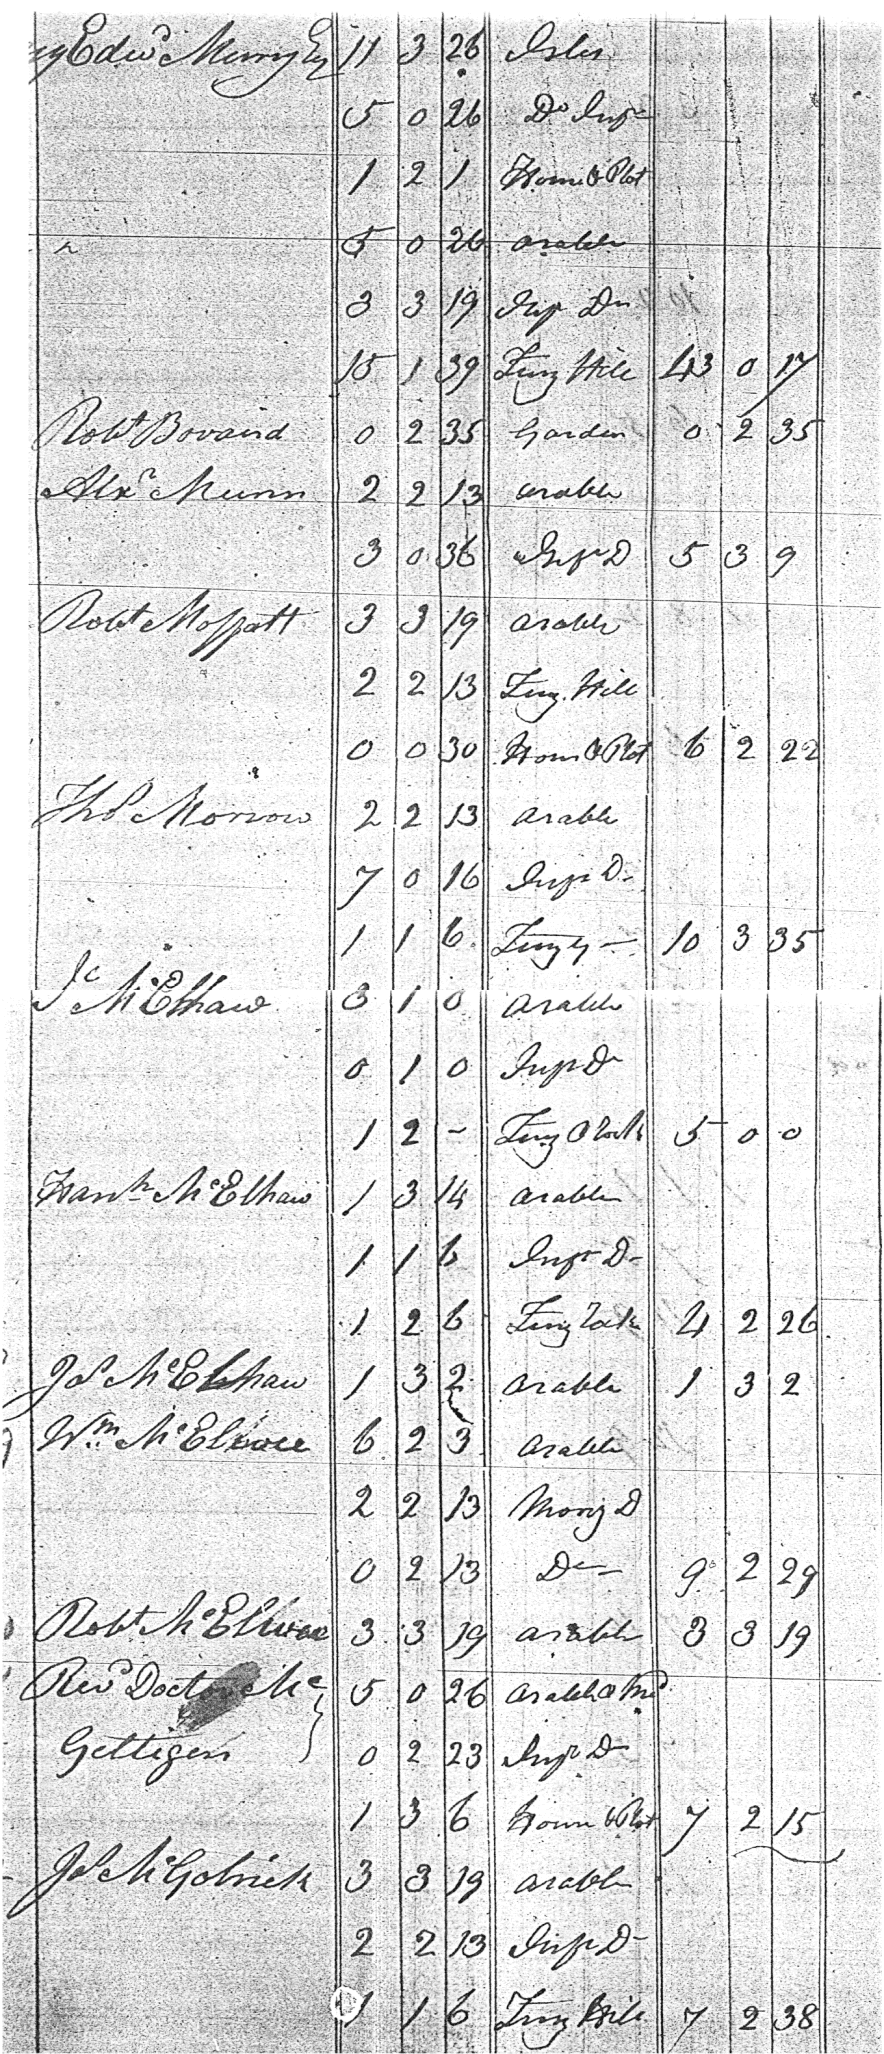 Edwd Murray Esq 11 3 26 Isles
5 0 26 Do Infr
1 2 1 House & Plot
5 0 26 arable
3 3 19 Infr Do
15 1 39 Furzy Hill 43 0 17
Robt Bovaird 0 2 35 Garden 0 2 35
Alxr Munn 2 2 13 arable
3 0 36 Infr D 5 3 9
Robt Moffatt 3 3 19 arable
2 2 13 Furzy Hill
0 0 30 House & Plot 6 2 22
Thos Morrow 2 2 13 arable
7 0 16 Infr D
1 1 6 Furzy 10 3 35
Jc McElhaw 3 1 0 arable
0 1 0 Infr D
1 2 - Furzy & rock 5 0 0
McElhaw 1 3 14 arable
1 1 6 Infr D
1 2 6 Furzy rock 4 2 26
Js McElhaw 1 3 2 arable 1 3 2
Wm McElwee 6 2 3 arable
2 2 13 D
0 2 13 Do 9 2 29
Robt McElwee 3 3 19 arable 3 3 19
Revd Doctor Mc 5 0 26 arable &
Gettigen 0 2 23 Infr D
1 3 6 House & Plot 7 2 15
Js McGolrick 3 3 19 arable
2 2 13 Infr D
1 1 6 Furzy Hill 7 2 38